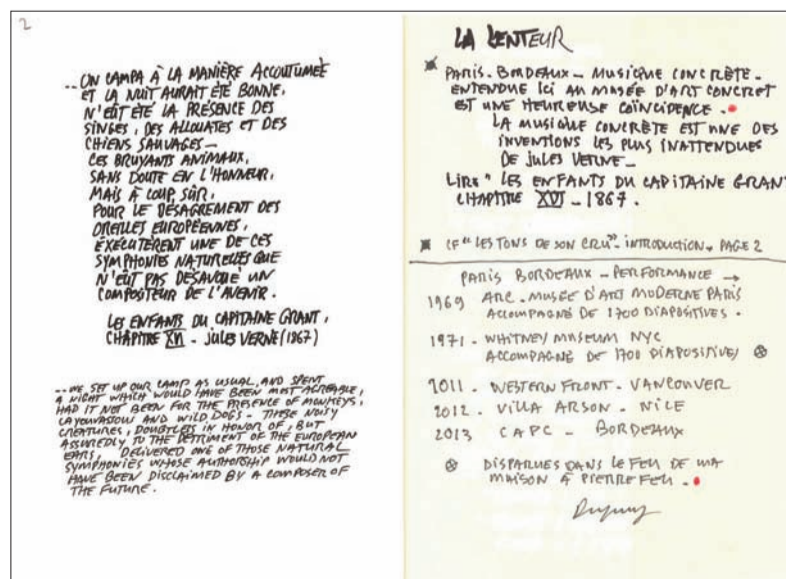 2
...ON CAMPA À LA MANIÈRE ACCOUTUMÉE
ET LA NUIT AURAIT ÉTÉ BONNE,
N'EÛT ÉTÉ LA PRÉSENCE DES
SINGES, DES ALLOUATES ET DES
CHIENS SAUVAGES –
CES BRUYANTS ANIMAUX,
SANS DOUTE EN L'HONNEUR,
MAIS À COUP SÛR,
POUR LE DÉSAGREMENT DES
OREILLES EUROPÉENNES,
EXÉCUTÈRENT UNE DE CES
SYMPHONIES NATURELLES QUE
N'EÛT PAS DÉSAVOUÉ UN
COMPOSITEUR DE L'AVENIR.
LES ENFANTS DU CAPITAINE GRANT,
CHAPITRE XVI - JULES VERNE (1867)
...WE SET UP OUR CAMP AS USUAL, AND SPENT
A NIGHT WHICH WOULD HAVE BEEN MOST AGREABLE,
HAD IT NOT BEEN FOR THE PRESENCE OF MONKEYS,
AND WILD DOGS - THESE NOISY
CREATURES, DOUBTLESS IN HONOR OF, BUT
ASSUREDLY TO THE DETRIMENT OF THE EUROPEAN
EARS, DELIVERED ONE OF THOSE NATURAL
SYMPHONIES WHOSE AUTHORSHIP WOULD NOT
HAVE BEEN DISCLAIMED BY A COMPOSER OF
THE FUTURE.
LA LENTEUR
PARIS-BORDEAUX – MUSIQUE CONCRÈTE –
ENTENDUE ICI AU MUSÉE D'ART CONCRET
EST UNE HEUREUSE COÏNCIDENCE.
LA MUSIQUE CONCRÈTE EST UNE DES
INVENTIONS LES PLUS INATTENDUES
DE JULES VERNE –
LIRE "LES ENFANTS DU CAPITAINE GRANT
CHAPITRE XVI - 1867.
CF "LES TONS DE SON CRU" - INTRODUCTION, PAGE 2
PARIS BORDEAUX – PERFORMANCE →
1969 ARC - MUSÉE D'ART MODERNE PARIS
ACCOMPAGNÉ DE 1700 DIAPOSITIVES.
1971 - WHITNEY MUSEUM NYC
ACCOMPAGNÉ DE 1700 DIAPOSITIVES ⊗
2011 - WESTERN FRONT - VANCOUVER
2012 - VILLA ARSON - NICE
2013 CAPC - BORDEAUX
⊗ DISPARUES DANS LE FEU DE MA
MAISON À PIERREFEU.